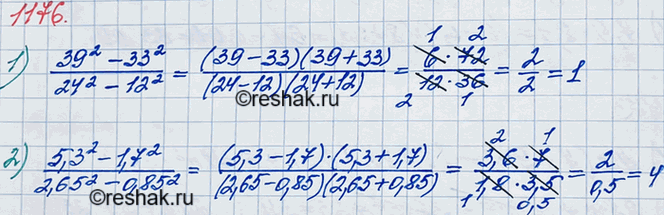 1176.
1) (39² − 33²)/(24² − 12²) = ((39−33)(39+33))/((24−12)(24+12)) = (6 · 72)/(12 · 36) = 2/2 = 1
1 2
2 1
©reshak.ru
2) (5,3² − 1,7²)/(2,65² − 0,85²) = ((5,3−1,7)·(5,3+1,7))/((2,65−0,85)(2,65+0,85)) = (3,6 · 7)/(1,8 · 3,5) = 2/0,5 = 4
2 1
1 0,5
©reshak.ru